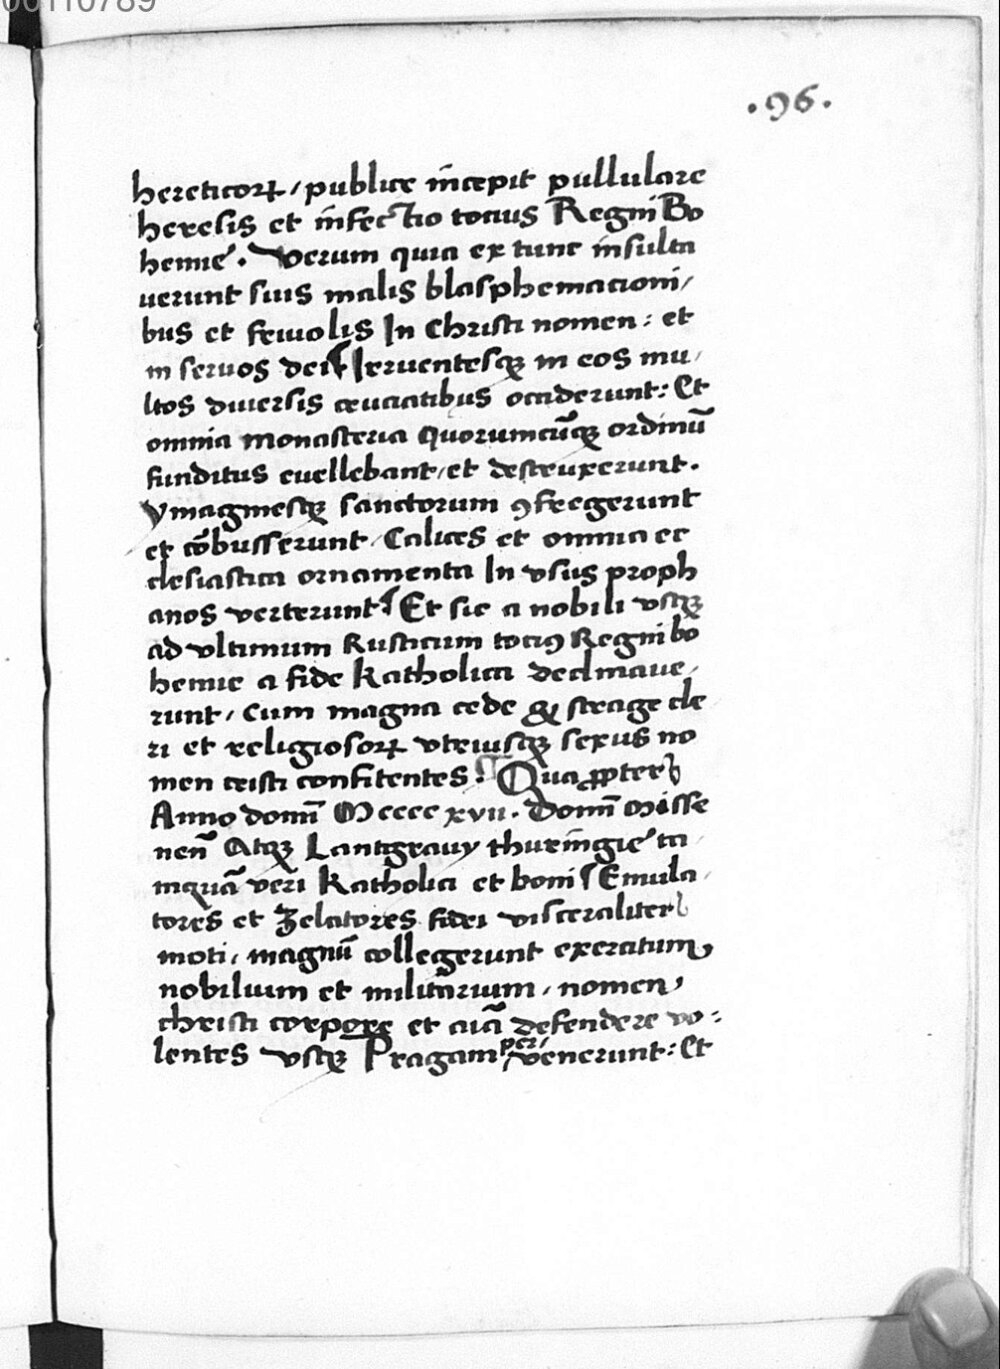 00110789
.96.
hereticorꝝ / publice incepit pullulare
heresis et infectio tocius Regni Bo
hemie. Verum quia ex tunc insulta
uerunt suis malis blasphemacioni/
bus et friuolis In Christi nomen: et
in seruos dei Irruentesqꝫ in eos mu/
ltos diuersis cruciatibus occiderunt: Et
omnia monasteria quorumcūqꝫ ordinū
funditus euellebant / et destruxerunt.
ymaginesqꝫ sanctorum ꝯfregerunt
et cōbusserunt / Calices et omnia ec
clesiastica ornamenta In vsus proph
anos verterunt Et sic a nobili vsqꝫ
ad vltimum Rusticum tociꝰ Regni bo
hemie a fide Katholica declinaue/
runt / cum magna cede & strage cle
ri et religiosorꝝ vtriusqꝫ sexus no
men cristi confitentes. Qua ꝓpter
Anno domī Mcccc xvii. Domī Misse
nen̄ Atqꝫ Lantgrauy thuringie ta
mquā veri Katholici et boni Emula/
tores et Zelatores fidei visceraliter
moti / magnū collegerunt exercitum
nobilium et militarium / nomen
christi corpore et aīa defendere vo:
lentes vsqꝫ Pragam per/ venerunt: Et